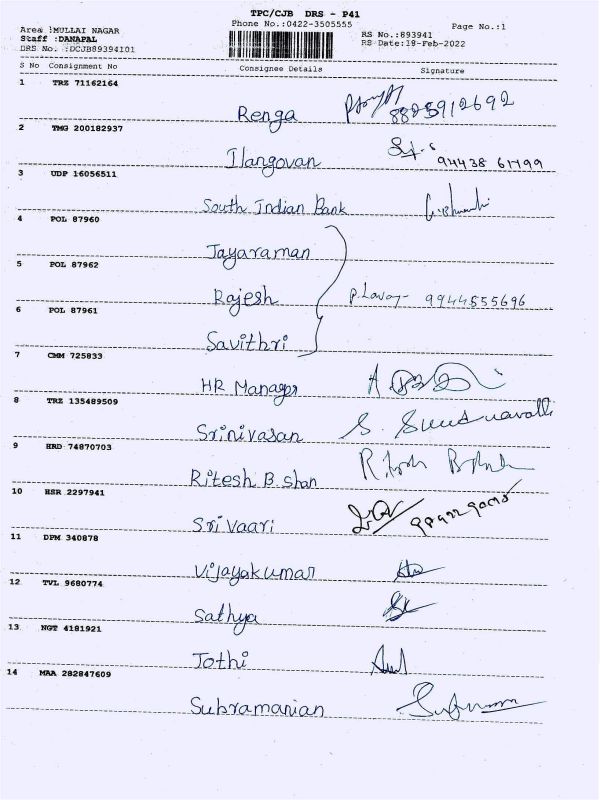 TPC/CJB DRS - P41
Phone No.:0422-3505555
Page No.:1
Area :MULLAI NAGAR
RS No.:893941
Staff :DANAPAL
RS Date:19-Feb-2022
DRS No. :DCJB89394101
S No Consignment No Consignee Details Signature
1 TRZ 71162164
Renga 8825912692
2 TMG 200182937
Ilangovan 94438 61799
3 UDP 16056511
South Indian Bank
4 POL 87960
Jayaraman
5 POL 87962
Rajesh 9944555696
6 POL 87961
Savithri
7 CMM 725833
HR Manager
8 TRZ 135489509
Srinivasan
9 HRD 74870703
Ritesh B. shan
10 HSR 2297941
Sri Vaari
11 DPM 340878
Vijayakumar
12 TVL 9680774
Sathya
13 NGT 4181921
Jothi
14 MAA 282847609
Subramanian